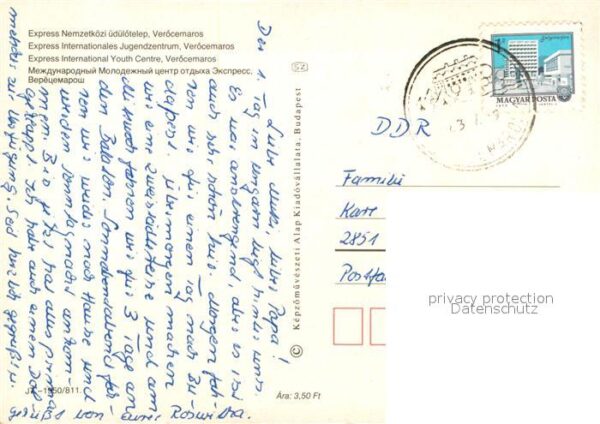 Express Nemzetközi üdülőtelep, Verőcemaros
Express Internationales Jugendzentrum, Verőcemaros
Express International Youth Centre, Verőcemaros
Международный Молодежный центр отдыха Экспресс,
Верёцемарош
Liebe Mutti, lieber Papa!
Der 1. Tag in Ungarn liegt hinter uns.
Es war anstrengend, aber es ist
auch sehr schön hier. Morgen fah-
ren wir für einen Tag nach Bu-
dapest. Übermorgen machen
wir eine Zwerkidisteine und am
Mittwoch fahren wir für 3 Tage an
den Balaton. Sonnabendabend fah-
ren wir wieder nach Hause und
werden Sonntagmorg ankom-
men. Bis jetzt hat alles prima
geklappt. Ich habe auch einen Dolm
metscher zur Verfügung. Seid herzlich gegrüßt u.
geküßt von eurer Roswitha.
JK-1950/811.
Ára: 3,50 Ft
© Képzőművészeti Alap Kiadóvállalata, Budapest
SZ
1Ft
MAGYAR POSTA
DDR
Familie
Karl
2851
Postfa
privacy protection
Datenschutz